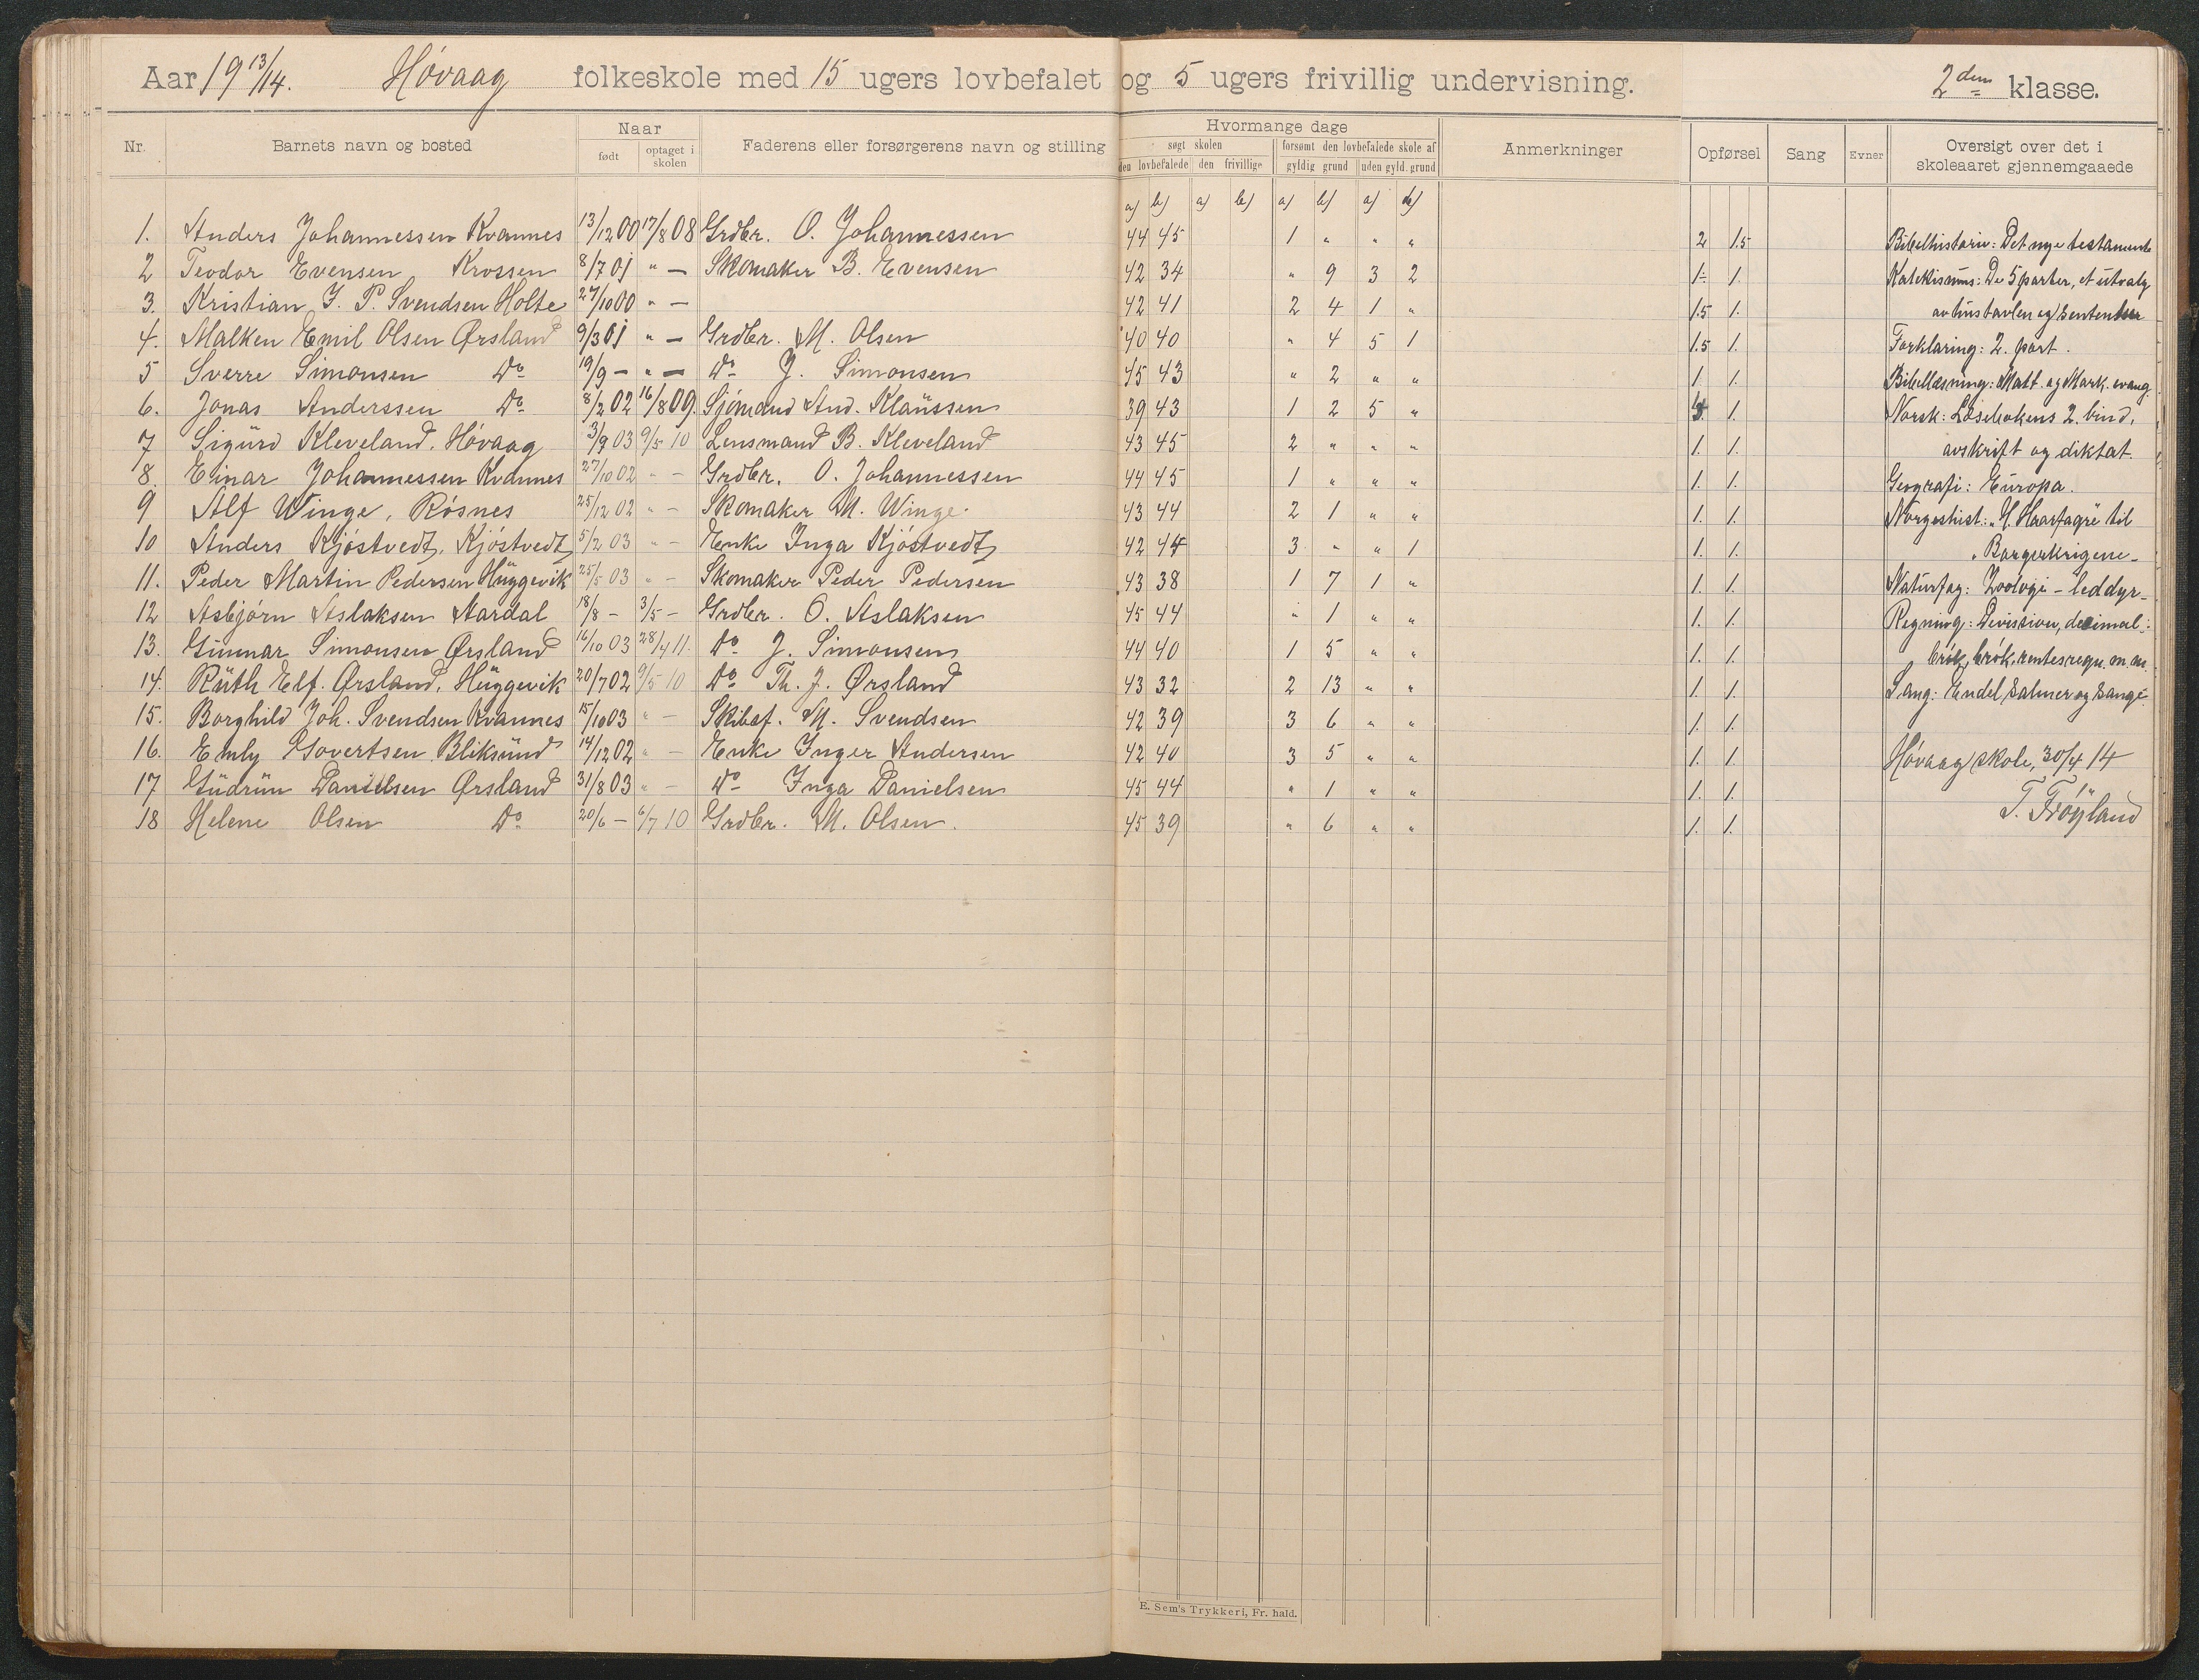 Aar 19 13/14. Høvaag folkeskole med 15 ugers lovbefalet og 5 ugers frivillig undervisning. 2den klasse.
Nr. Barnets navn og bosted Naar født optaget i skolen Faderens eller forsørgerens navn og stilling Hvormange dage søgt skolen den lovbefalede den frivillige forsømt den lovbefalede skole af gyldig grund uden gyld. grund Anmerkninger Opførsel Sang Evner Oversigt over det i skoleaaret gjennemgaaede
a) b) a) b) a) b) a) b)
1. Anders Johannessen Kvannes 13/12 00 17/8 08 Grdbr. O. Johannessen 44 45 1 " " " 2 1.5 Bibelhistorie: Det nye testamente
2 Teodor Evensen Krossen 8/7 01 " — Skomaker B. Evensen 42 34 " 9 3 2 1÷ 1. Katekismus: De 5 parter, et utvalg
3. Kristian J. P. Svendsen Holte 27/10 00 " — 42 41 2 4 1 " 1.5 1. av hustavlen og sentenser
4. Malken Emil Olsen Ørsland 9/3 01 " — Grdbr. M. Olsen 40 40 " 4 5 1 1.5 1. Forklaring: 2. part.
5 Sverre Simonsen Do 19/9 — " — Do J. Simonsen 45 43 " 2 " " 1. 1. Bibellæsning: Matt. og Mark. evang.
6. Jonas Anderssen Do 8/2 02 16/8 09. Sjømand And. Klaussen 39 43 1 2 5 " 1. Norsk: Læsebokens 2. bind,
7 Sigurd Kleveland, Høvaag 3/9 03 9/5 10 Lensmand B. Kleveland 43 45 2 " " " 1. 1. avskrift og diktat.
8. Einar Johannessen Kvannes 27/10 02 " — Grdbr. O. Johannessen 44 45 1 " " " 1. 1. Geografi: Europa.
9 Alf Winge, Røsnes 25/12 02 " — Skomaker M. Winge. 43 44 2 1 " " 1. 1. Norgeshist.: "H. Haarfagre til
10 Anders Kjøstvedt, Kjøstvedt 5/2 03 " — Enke Inga Kjøstvedt 42 44 3 " " 1 1. 1. "Borgerkrigene—
11. Peder Martin Pedersen Huggevik 25/5 03 " — Skomaker Peder Pedersen 43 38 1 7 1 " 1. 1. Naturfag: Zoologi – leddyr—
12 Asbjørn Aslaksen Aardal 18/8 — 3/5 — Grdbr. O. Aslaksen 45 44 " 1 " " 1. 1. Regning: Division, desimal-
13. Gunnar Simonsen Ørsland 16/10 03 28/4 11. Do J. Simonsen 44 40 1 5 " " 1. 1. brøk, brøk, rentesregn. m.m.
14. Ruth Elf. Ørsland, Huggevik 20/7 02 9/5 10 Do Th. J. Ørsland 43 32 2 13 " " 1. 1. Sang: Endel salmer og sange.
15. Borghild Joh. Svendsen Kvannes 15/10 03 " — Skibsf. M. Svendsen 42 39 3 6 " " 1. 1.
16. Emly Govertsen Bliksund 14/12 02 " — Enke Inger Andersen 42 40 3 5 " " 1. 1. Høvaag skole, 30/4 14
17 Gudrun Danielsen Ørsland 31/8 03 " — Do Inga Danielsen 45 44 " 1 " " 1. 1. T. Frøyland
18 Helene Olsen Do 20/6 — 6/7 10 Grdbr. M. Olsen. 45 39 " 6 " " 1. 1.
E. Sem's Trykkeri, Fr. hald.